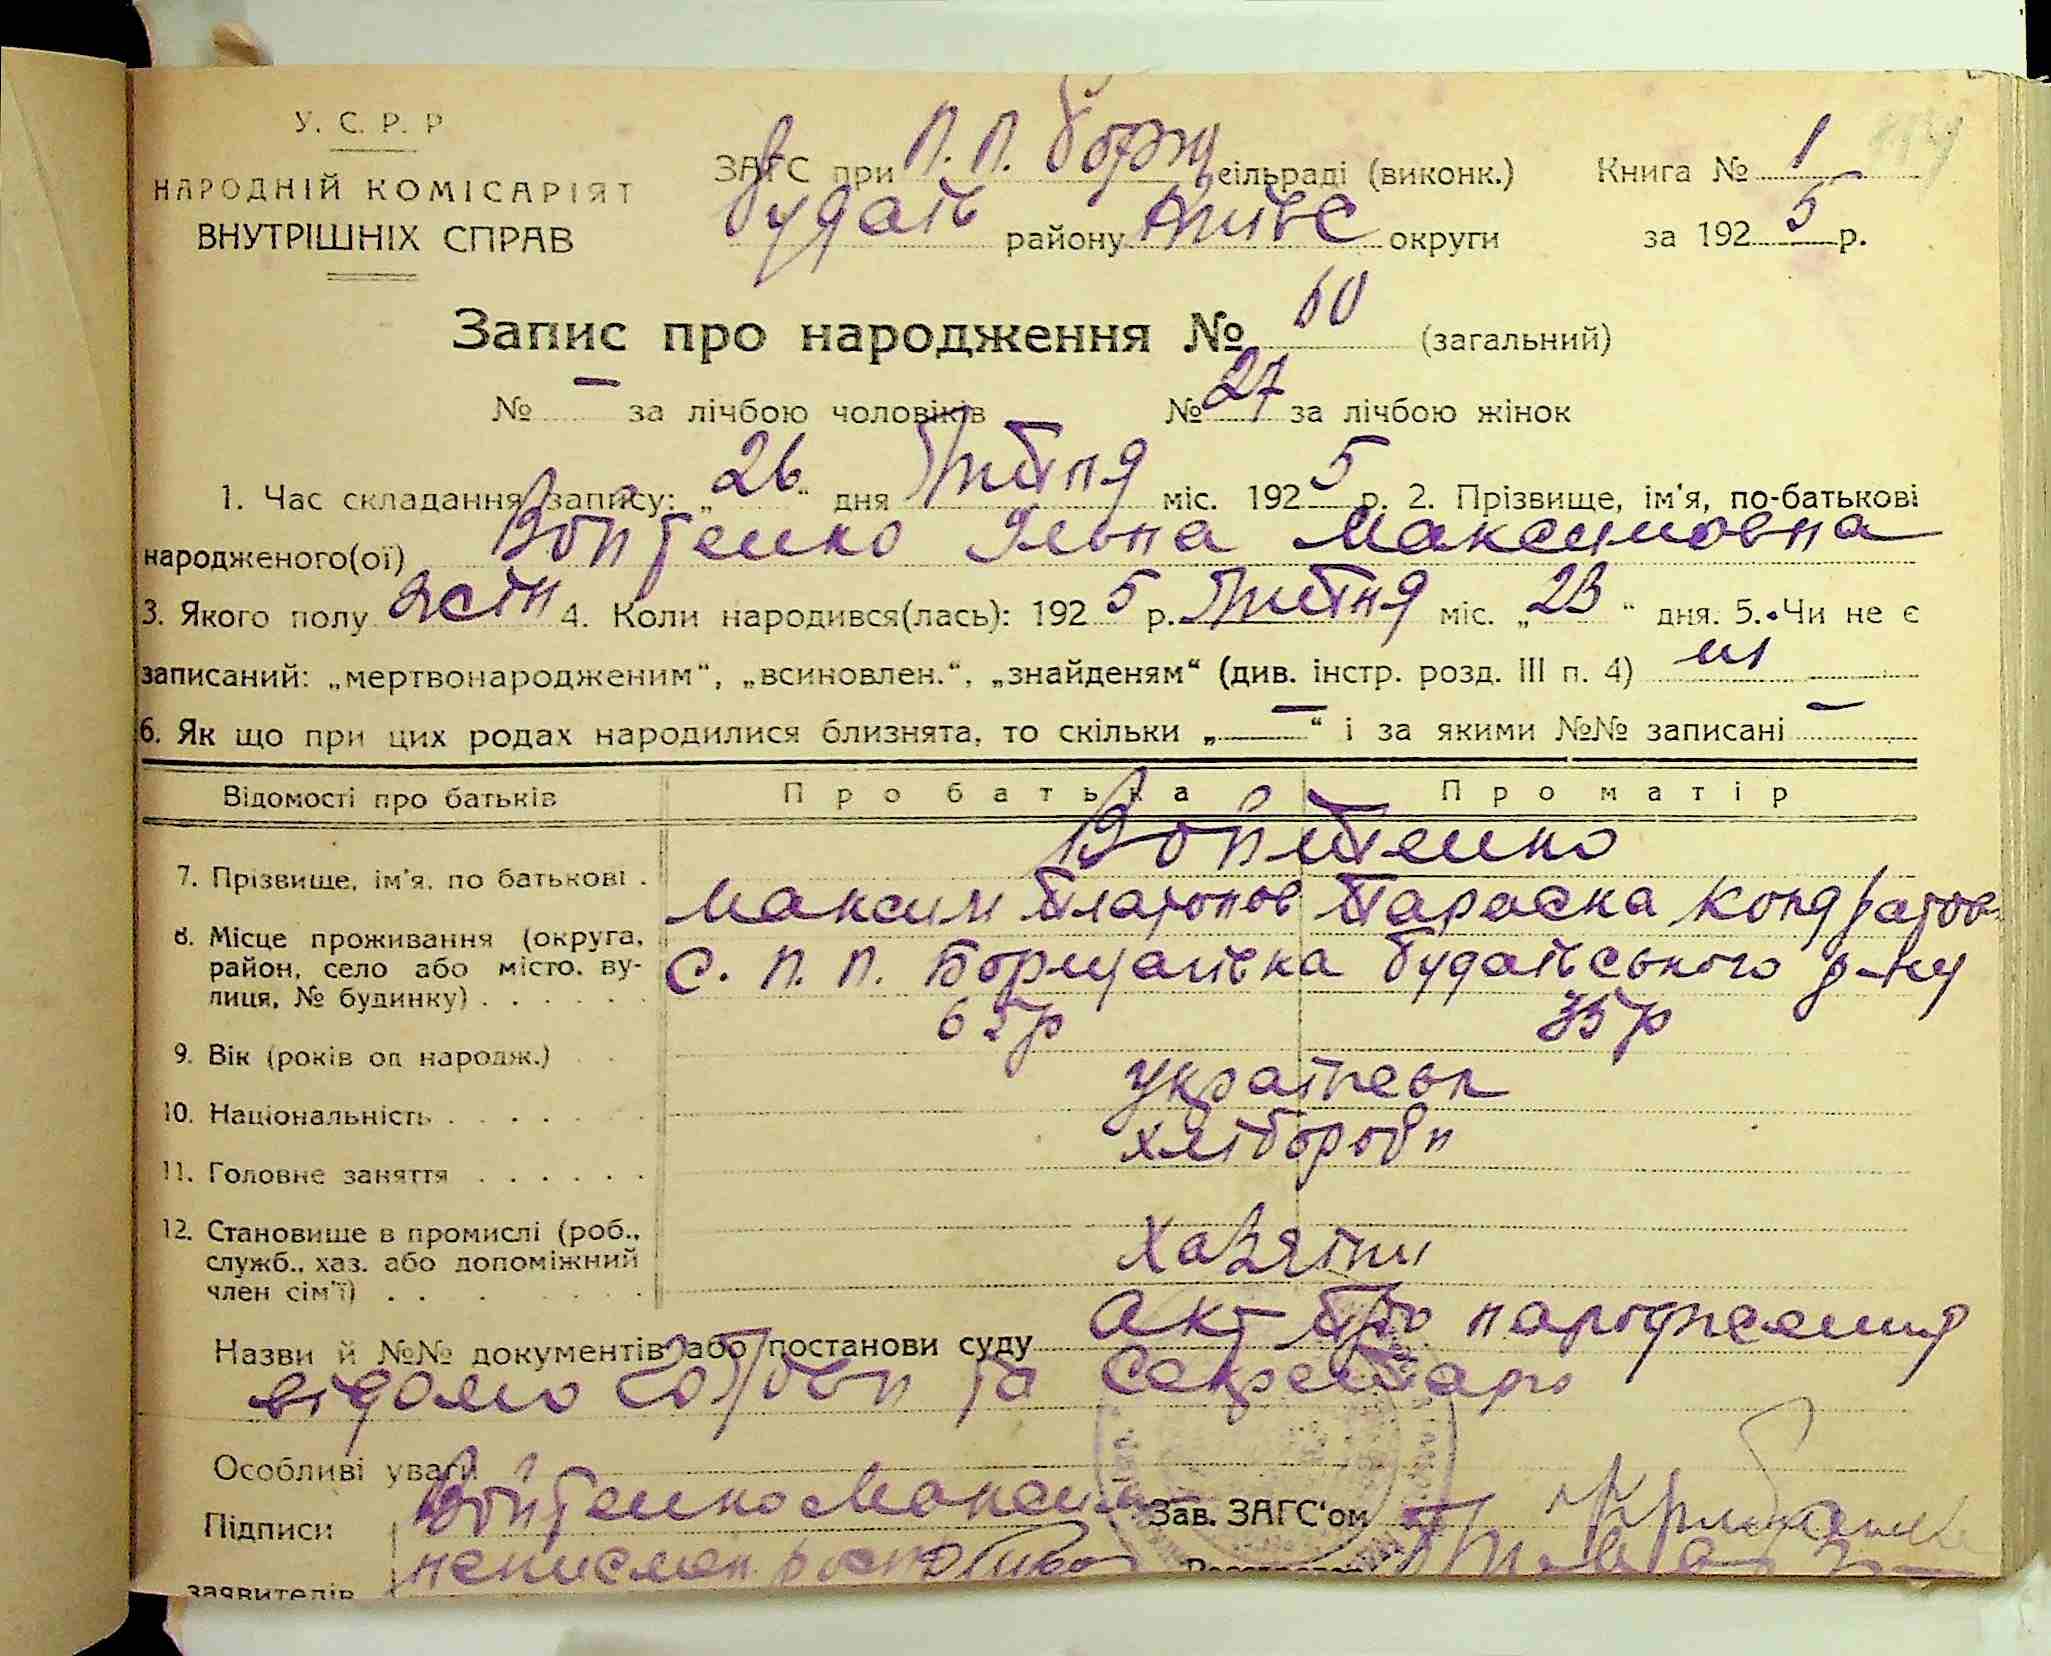 У. С. Р. Р
НАРОДНІЙ КОМІСАРІЯТ
ВНУТРІШНІХ СПРАВ
ЗАГС при П. П. Борщ сільраді (виконк.)
Будаїв району Київс округи
Книга № 1
за 1925 р.
Запис про народження № 60 (загальний)
№ — за лічбою чоловіків № 27 за лічбою жінок
1. Час складання запису: „26“ дня Липня міс. 1925 р. 2. Прізвище, ім'я, по-батькові
народженого(ої) Войтенко Ганна Максимовна
3. Якого полу жін 4. Коли народився(лась): 1925 р. Липня міс. „23“ дня. 5. Чи не є
записаний: „мертвонародженим“, „всиновлен.“, „знайденям“ (див. інстр. розд. III п. 4) ні
6. Як що при цих родах народилися близнята, то скільки „—“ і за якими №№ записані —
Відомості про батьків Про батька Про матір
Войтенко
7. Прізвище, ім'я, по батькові . Максим Платонов Параска Кондратов
8. Місце проживання (округа, район, село або місто, вулиця, № будинку) . . . . . . с. П. П. Борщагівка Будаївського р-ну
9. Вік (років од народж.) . . 65 р 35 р
10. Національність . . . . . . україньці
11. Головне заняття . . . . . . хлібороби
12. Становище в промислі (роб., служб., хаз. або допоміжний член сім'ї) . . . . . . Хазяїни
Назви й №№ документів або постанови суду акт про народження
відомо голові та секретарю
Особливі уваги
Підписи Войтенко Максим Зав. ЗАГС'ом
заявителів неписмен